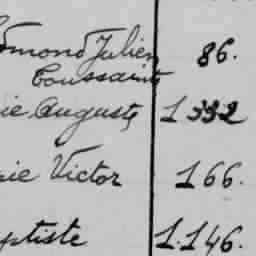 Edmond Julien 86.
Toussaint
ie Auguste 1332
ie Victor 166.
ptiste 1.146.